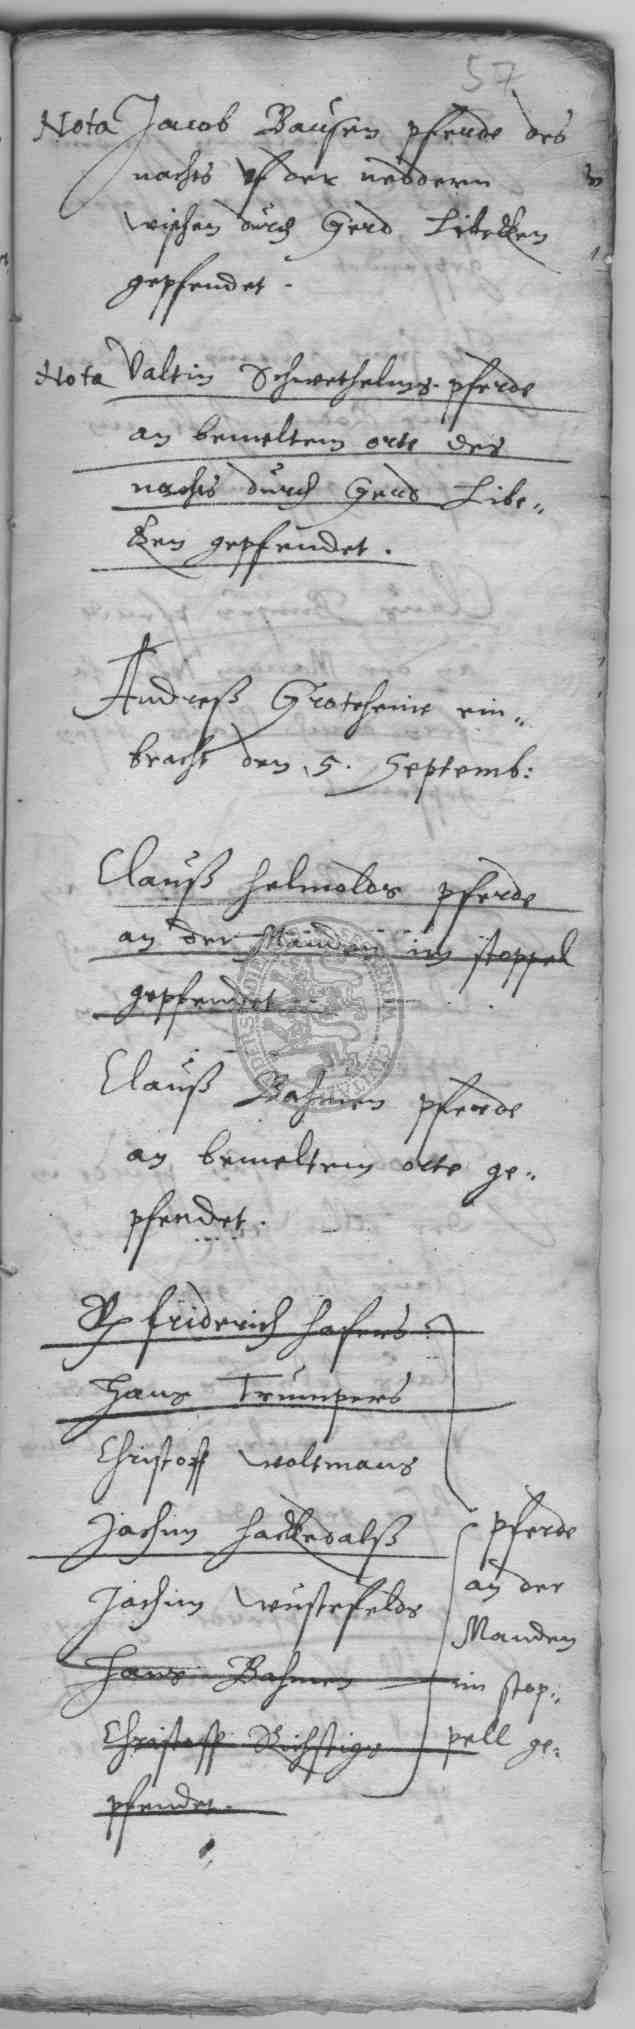 57
Nota Jacob Bausen pferde des
nachts uf der neddern
wischen durch Gerd Libecken
gepfendet.
Nota Valtin Schwethelms pferde
an bemeltem orte des
nachts durch Gerd Libe„
cken gepfendet.
Andreß Grotheine ein„
bracht den 5. Septemb:
Clauß Helmolds pferde
an der Manden im stoppel
gepfendet
Clauß Bahmen pferde
an bemeltem orte ge„
pfendet.
friderich Hafers
Hans Trumpers
Christoff Woltmans
Jachim Hackedalß
Jachim Wustefelds
Hans Bahmen
Christoff Richstigs
pferde
an der
Manden
im stop„
pell ge„
pfendet.